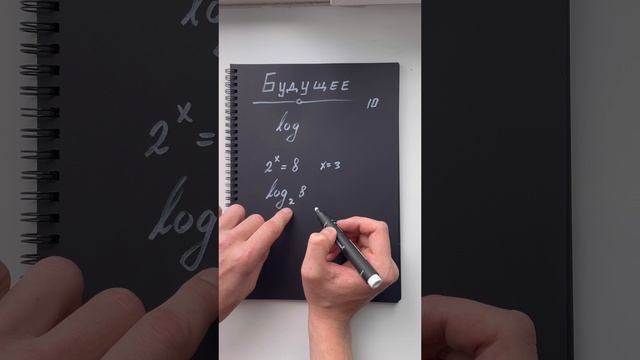 Будущее
10
log
2ˣ = 8 x=3
log₂ 8